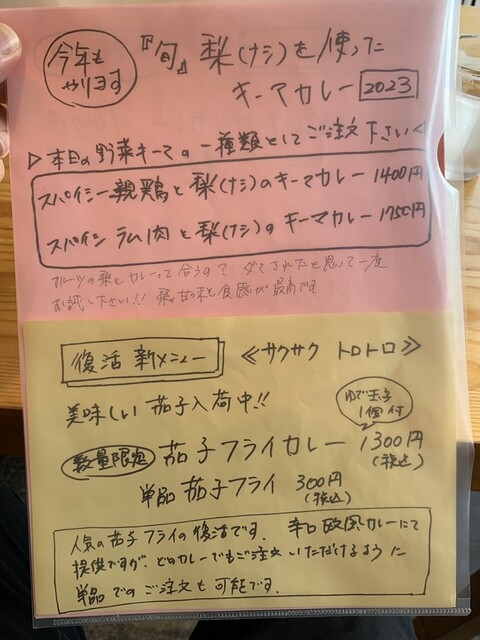 今年も
やります
『旬』梨(ナシ)を使った
キーマカレー 2023
▷本日の野菜キーマの一種類としてご注文下さい
スパイシー親鶏と梨(ナシ)のキーマカレー 1400円
スパイシーラム肉と梨(ナシ)のキーマカレー 1750円
フルーツの梨とカレーって合うの？ ダマされたと思って一度
お試し下さい!! 梨の甘味と食感が最高です
復活 新メニュー ≪サクサク トロトロ≫
美味しい茄子入荷中!!
ゆで玉子
1個付
数量限定 茄子フライカレー 1300円
(税込)
単品 茄子フライ 300円
(税込)
人気の茄子フライの復活です. 辛口欧風カレーにて
提供ですが、どのカレーでもご注文いただけるように
単品でのご注文も可能です.